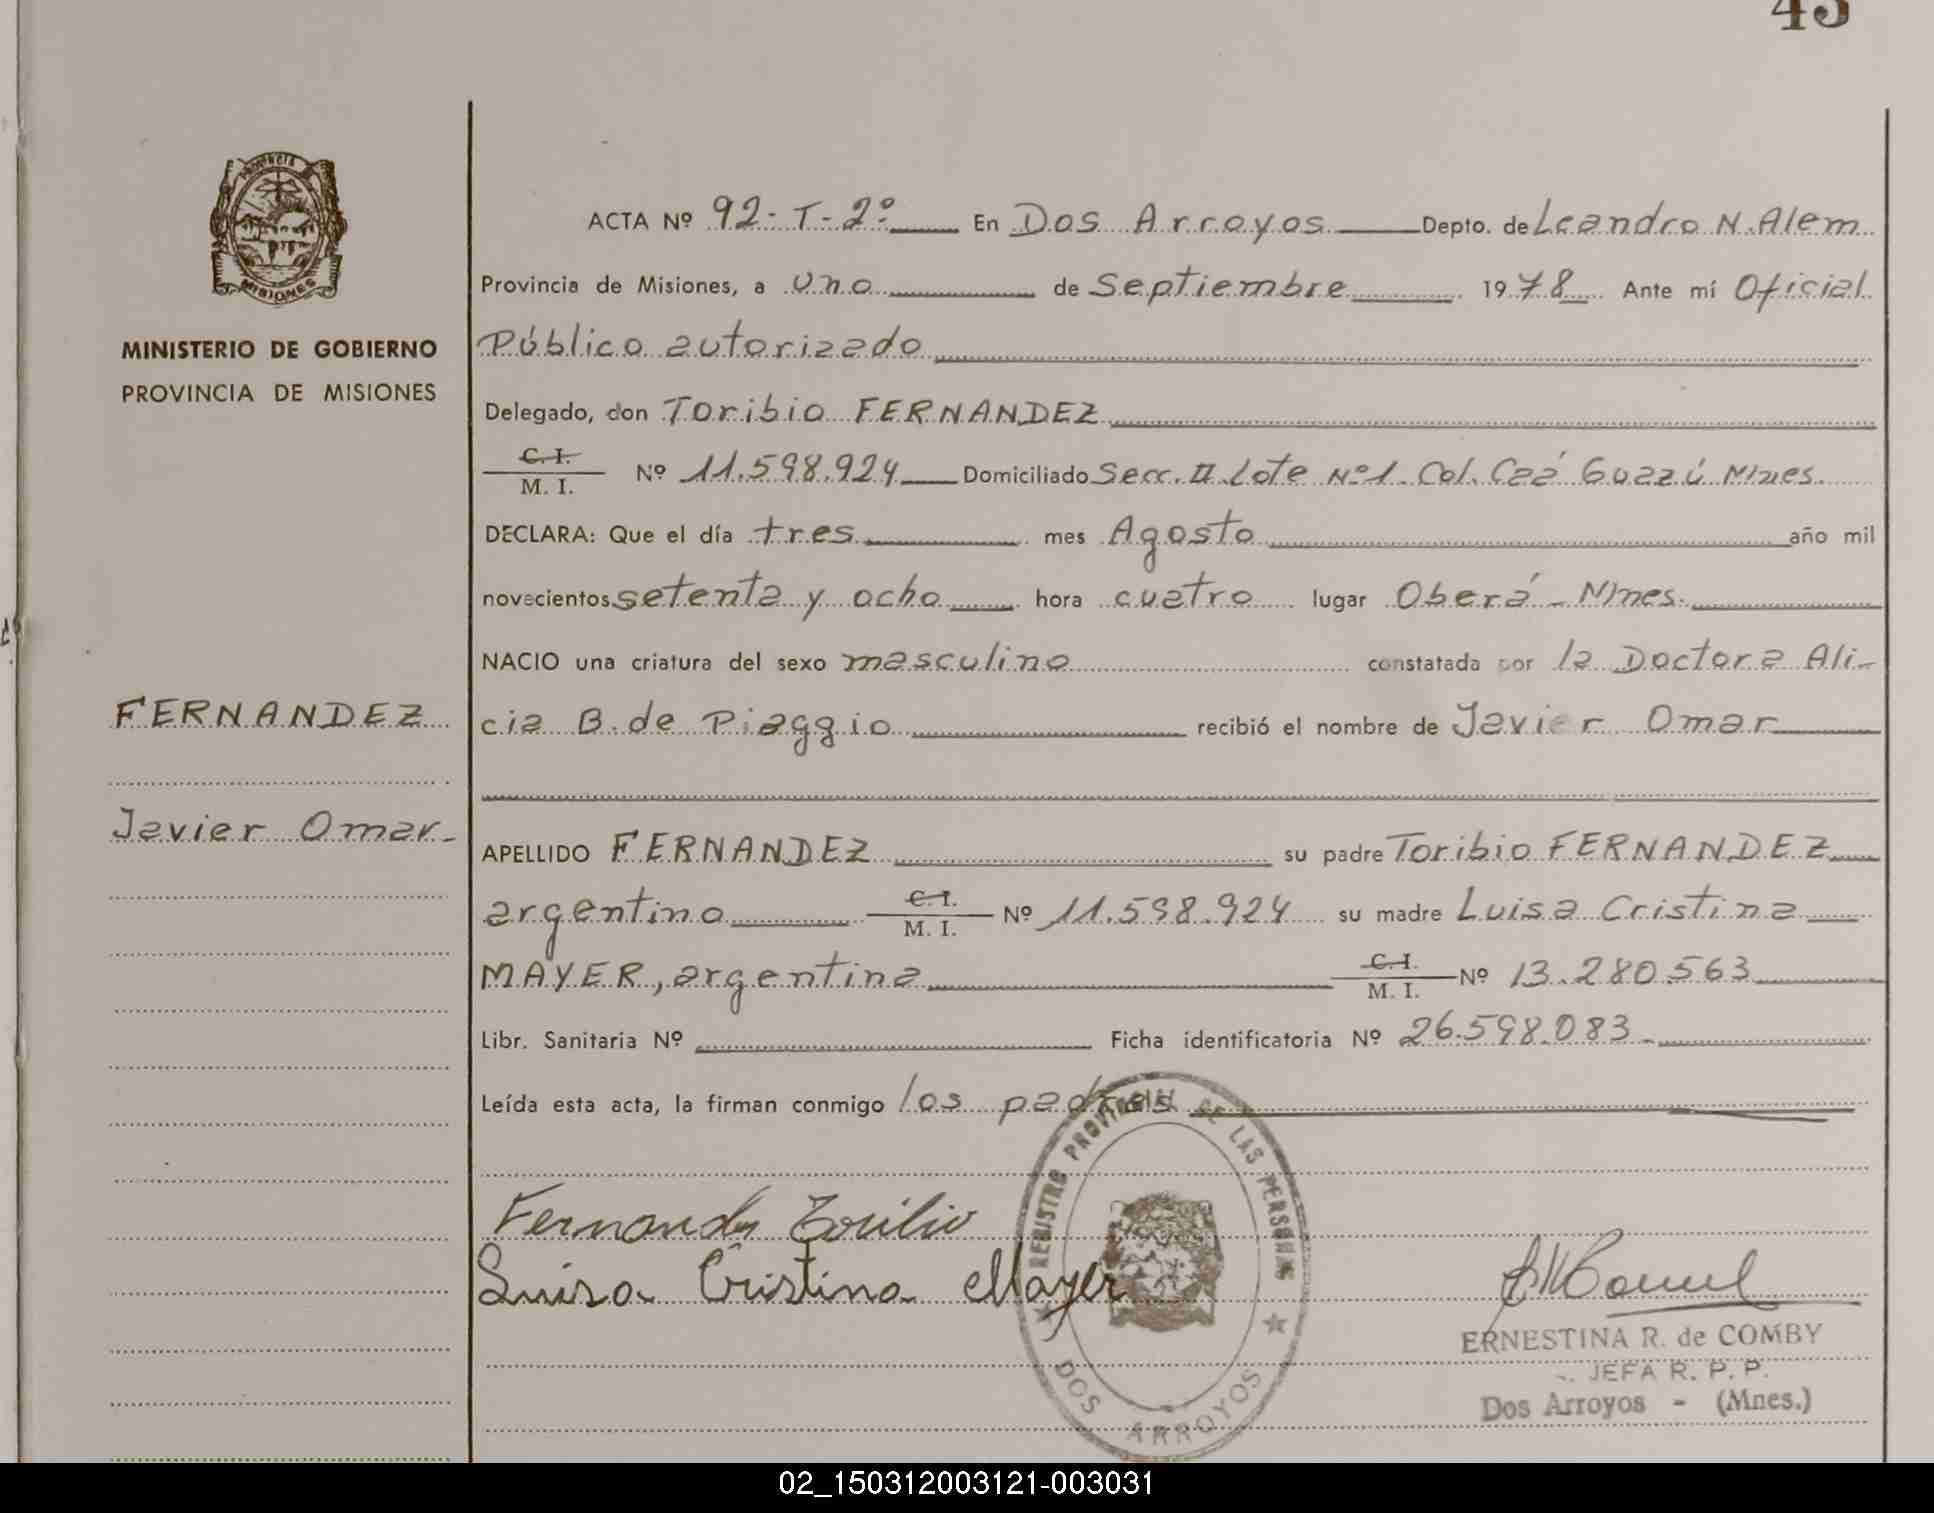 45
PROVINCIA
MISIONES
MINISTERIO DE GOBIERNO
PROVINCIA DE MISIONES
FERNANDEZ
Javier Omar.-
ACTA Nº 92- T- 2º En Dos Arroyos Depto. de Leandro N. Alem
Provincia de Misiones, a uno de Septiembre 1978 Ante mí Oficial
Público autorizado
Delegado, don Toribio FERNANDEZ
C. I. / M. I. Nº 11.598.924 Domiciliado Secc. II Lote Nº1. Col. Caá Guazú Mnes.
DECLARA: Que el día tres mes Agosto año mil
novecientos setenta y ocho hora cuatro lugar Oberá - Mnes.
NACIO una criatura del sexo masculino constatada por la Doctora Ali-
cia B. de Piaggio recibió el nombre de Javier Omar
APELLIDO FERNANDEZ su padre Toribio FERNANDEZ
argentino C. I. / M. I. Nº 11.598.924 su madre Luisa Cristina
MAYER, argentina C. I. / M. I. Nº 13.280.563
Libr. Sanitaria Nº Ficha identificatoria Nº 26.598.083.-
Leída esta acta, la firman conmigo los padres
REGISTRO PROVINCIAL DE LAS PERSONAS
DOS ARROYOS
Luisa Cristina Mayer
ERNESTINA R. de COMBY
JEFA R. P. P.
Dos Arroyos - (Mnes.)
02_150312003121-003031